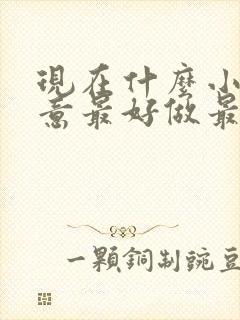 現在什麼小
意最好做最
一顆銅制豌豆